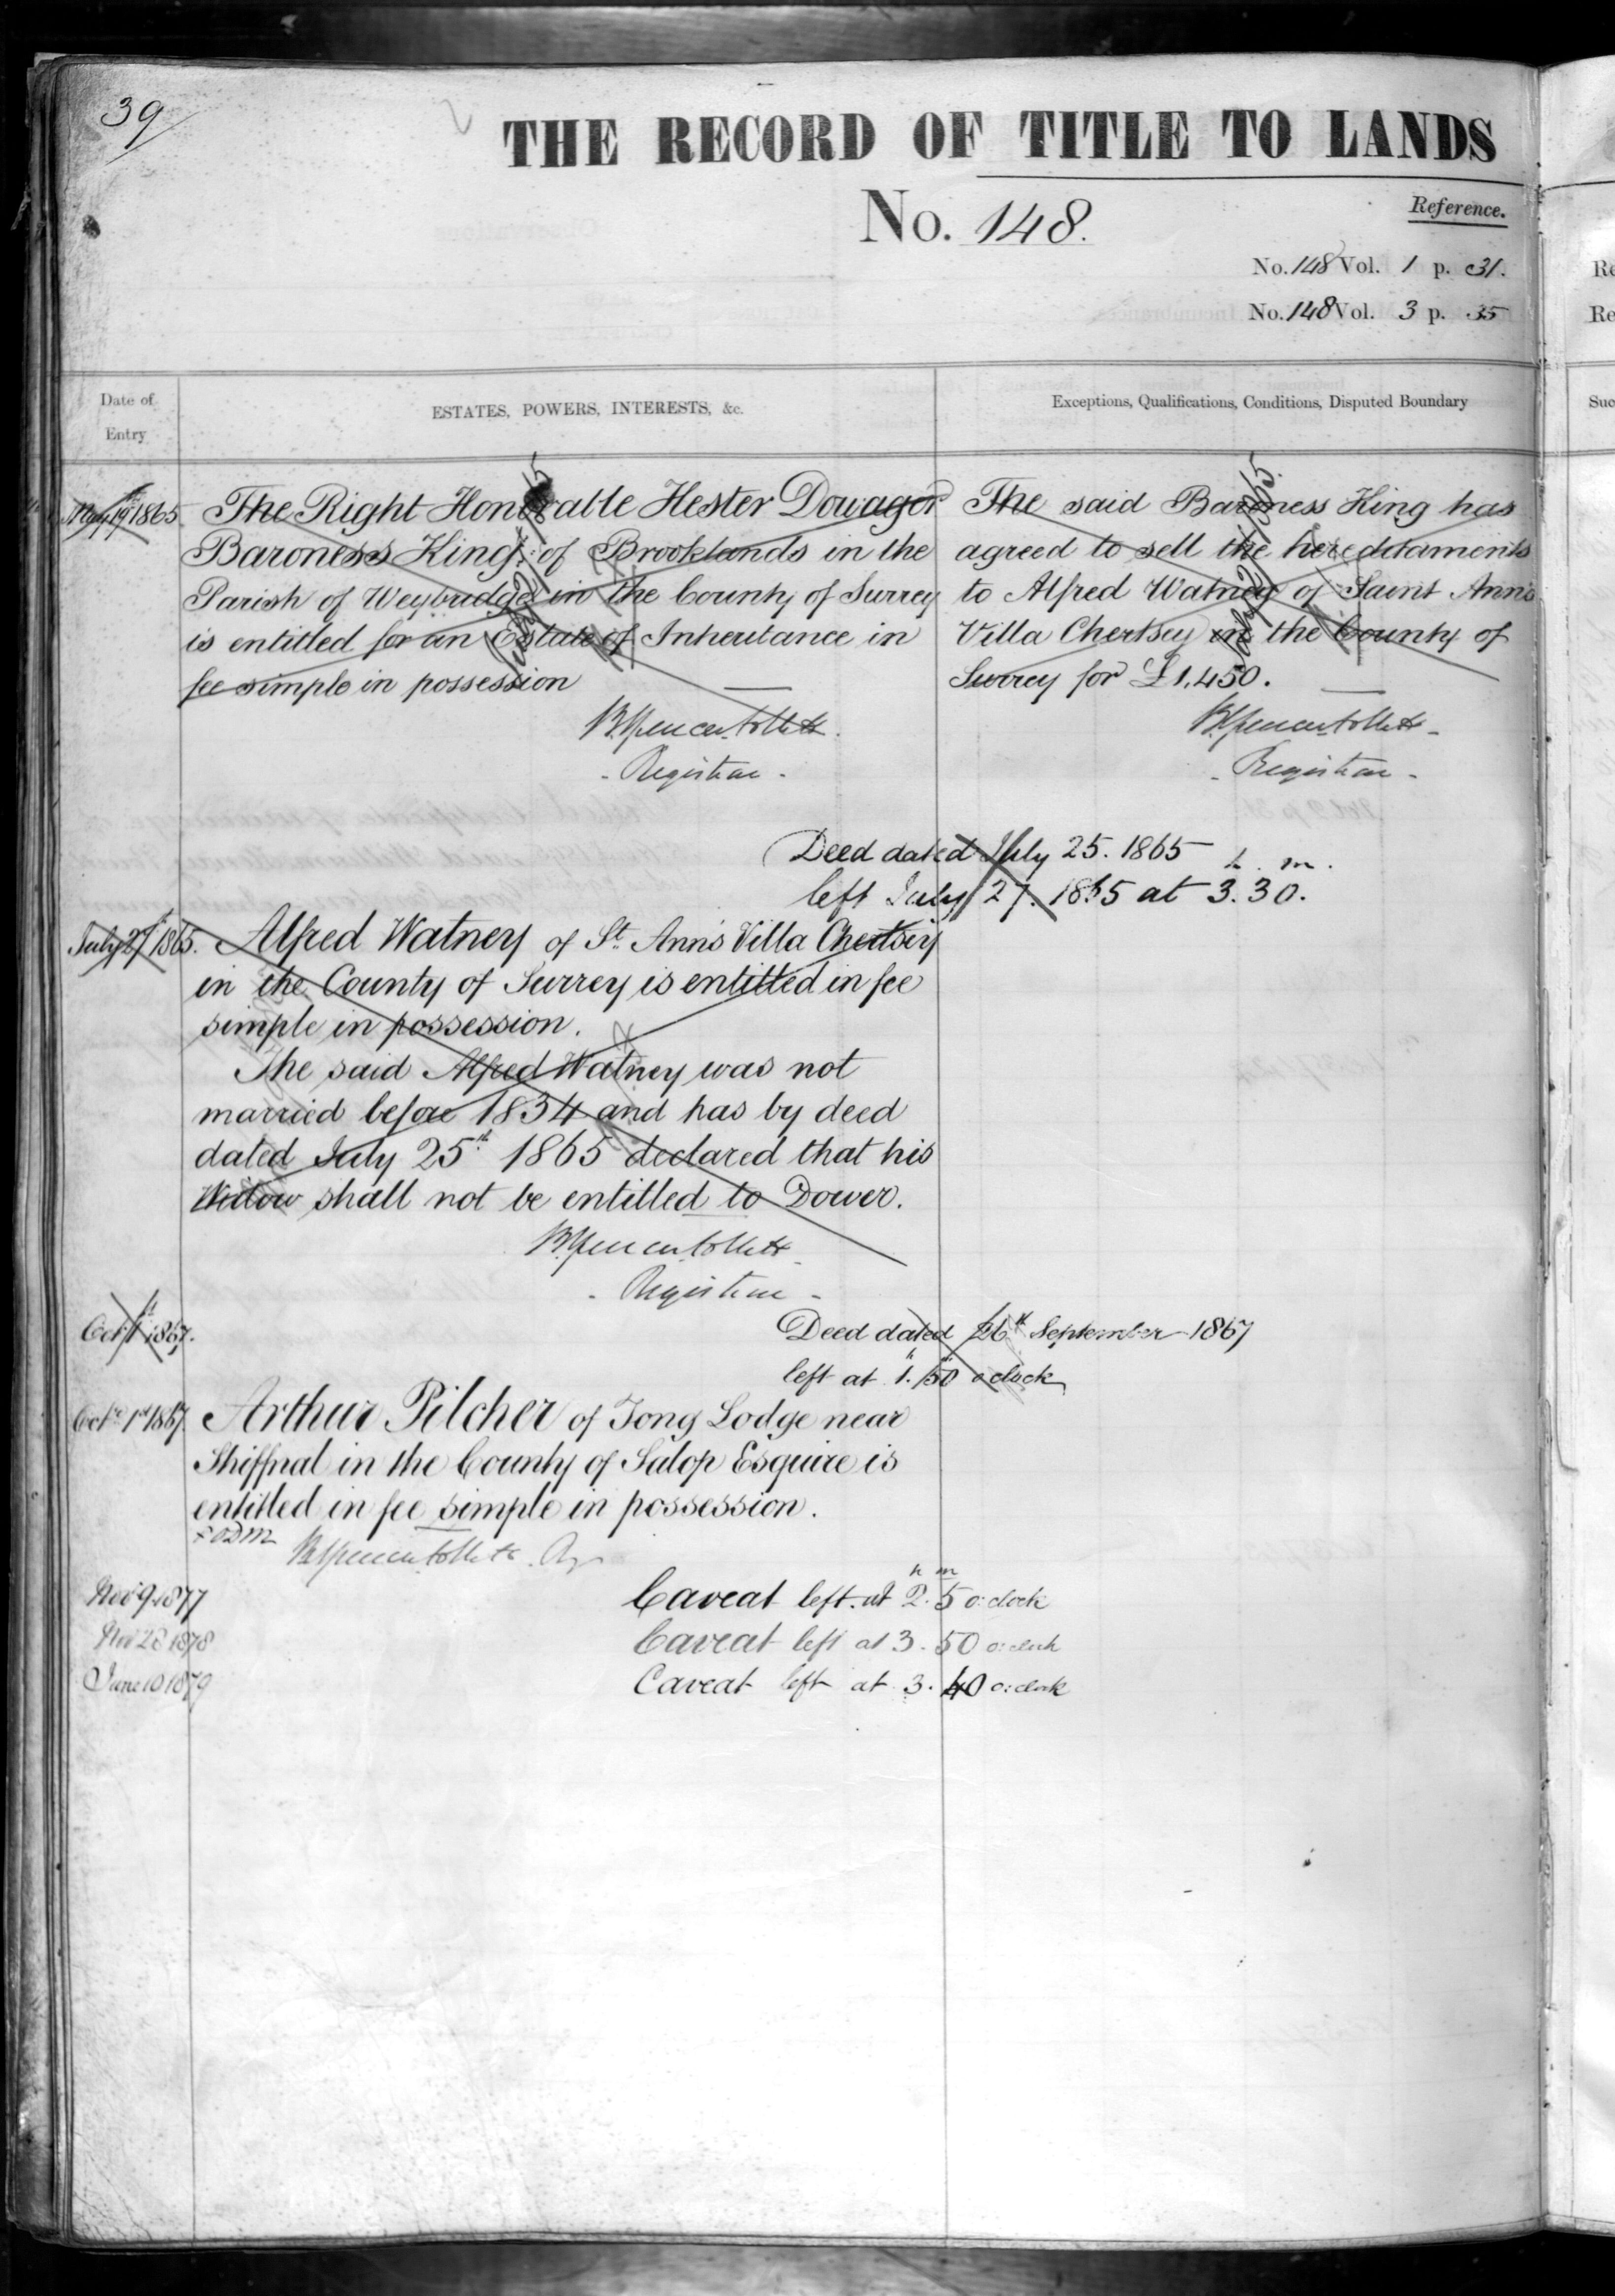 39
THE RECORD OF TITLE TO LANDS
No. 148.
Reference.
No. 148 Vol. 1 p. 31.
No. 148 Vol. 3 p. 35
Date of
Entry
ESTATES, POWERS, INTERESTS, &c.
Exceptions, Qualifications, Conditions, Disputed Boundary
May 19th 1865
The Right Honorable Hester Dowager
Baroness King of Brooklands in the
Parish of Weybridge in the County of Surrey
is entitled for an Estate of Inheritance in
fee simple in possession
B. Spencer Follett
- Registrar -
The said Baroness King has
agreed to sell the hereditaments
to Alfred Watney of Saint Ann's
Villa Chertsey in the County of
Surrey for £1,450.
B. Spencer Follett -
- Registrar -
Deed dated July 25. 1865
h. m.
left July 27. 1865 at 3.30.
July 27th 1865.
Alfred Watney of St. Ann's Villa Chertsey
in the County of Surrey is entitled in fee
simple in possession.
The said Alfred Watney was not
married before 1834 and has by deed
dated July 25th 1865 declared that his
Widow shall not be entitled to Dower.
B. Spencer Follett
- Registrar -
Oct 1st 1867.
Deed dated 26th September 1867
h m
left at 1.50 o'clock
Octr. 1st 1867.
Arthur Pilcher of Tong Lodge near
Shiffnal in the County of Salop Esquire is
entitled in fee simple in possession.
B. Spencer Follett
h m
Nov 9 1877
Caveat left at 2.5 o:clock
Nov 28 1878
Caveat left at 3.50 o:clock
June 10 1879
Caveat left at 3.40 o:clock
Re
Re
Suc